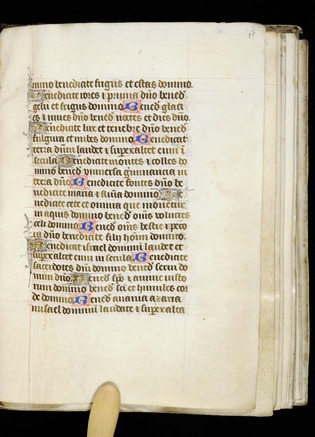 mino benedicite frigus et estas domino.
Benedicite rores et pruina dño bened̃
gelu et frigus domino. Bened̃ glaci
es et niues dño bened̃ noctes et dies dño.
Benedicite lux et tenebre dño bened̃
fulgura et nubes domino. Benedicat
terra dñm laudet et superexaltet eum ī
secula. Benedicite montes et colles do
mino bened̃ vniuersa germinancia in
terra dño. Benedicite fontes dño be
nedicite maria et flūīa domino. Be
nedicite cete et omnia que mouētur
in aquis domino bened̃ om̃s volucres
celi domino. Bened̃ om̃s bestie et peco
ra dño benedicite filij hoīm domino.
Benedicat israel dominū laudet et
superexaltet eum in secula. Benedicite
sacerdotes dñi domino bened̃ serui do
mini dño. Bened̃ sp̃s et anime iusto
rum domino bened̃ sc̃i et humiles cor
de domino. Bened̃ anania azaria
misael dominū laudate et superexalta